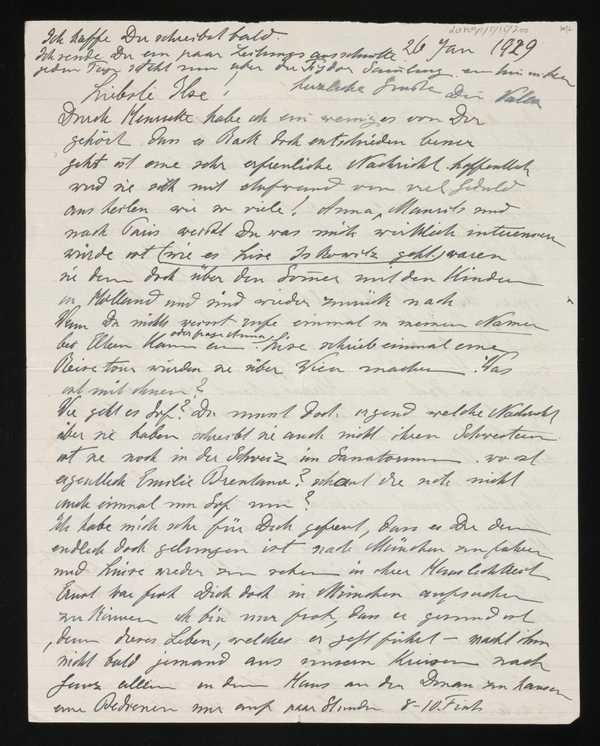 Ich hoffe Du schreibst bald.
26 Jan 1929
Ich sende Dir ein paar Zeitungsausschnitte
jeden Tag steht nun über die Figdor Samlung
herzliche Grüße Dein
Liebste Ilse!
Durch Henriette habe ich ein weniges von Dir
gehört dass es Ratk doch entschieden besser
geht ist eine sehr erfreuliche Nachricht hoffentlich
wird sie sich mit Aufwand von viel Geduld
ausheilen wie so viele! Anna, Maurits und
nach Paris weisst Du was mich wirklich interessieren
würde ist (wie es Lise Iskowitz geht) waren
sie denn doch über den Sommer mit den Kindern
in Holland und sind wieder zurück nach
Wenn Du nichts weisst rufe einmal in meinem Namen
bei Ellen Hamm an oder frage Anna. Lise schrieb einmal eine
Reise tour würden sie über Wien machen. Was
ist mit ihnen?
Wie geht es Sof? Du musst doch irgend welche Nachricht
über sie haben schreibt sie auch nicht ihren Schwestern
ist sie noch in der Schweiz im Sanatorium. wo ist
eigentlich Emilie Brentano? schaut die sich nicht
auch einmal um Sof um?
Ich habe mich sehr für Dich gefreut, dass es Dir denn
endlich doch gelungen ist nach München zu fahren
und Luise wieder zu sehen in ihrer Häuslichkeit
Ernst war froh Dich doch in München aufsuchen
zu können ich bin nur froh, dass er gesund ist
, denn dieses Leben, welches er jetzt führt – macht ihm
nicht bald jemand aus unseren Kreisen nach
Ganz allein in dem Haus an der Donau zu hausen
eine Bedienerin nur auf paar Stunden 8-10. Früh